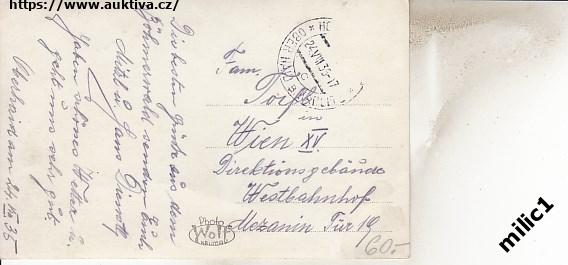 https://www.auktiva.cz/
Die besten Grüße aus dem
Böhmerwald senden Euch
Mitzl u. Hans
Haben schönes Wetter u.
geht uns sehr gut.
am 24. VII 35
Fam.
in
Wien XV.
Direktionsgebäude
Westbahnhof
Mezanin Tür 19
24.VII.35-17
Photo
Wolf
60.-
milic1